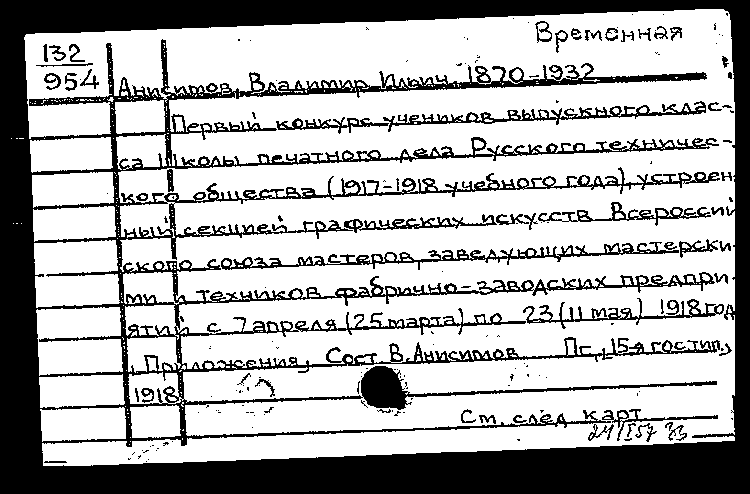 Временная
132
954
Анисимов, Владимир Ильич, 1870-1932
Первый конкурс учеников выпускного клас-
са Школы печатного дела Русского техничес-
кого общества (1917-1918 учебного года), устроен
ный секцией графических искусств Всероссий
ского союза мастеров, заведующих мастерски-
ми и техников фабрично-заводских предпри-
ятий с 7 апреля (25 марта) по 23 (11 мая) 1918 год
, Приложения, Сост В. Анисимов Пг., 15-я гос тип,
1918
См. след карт